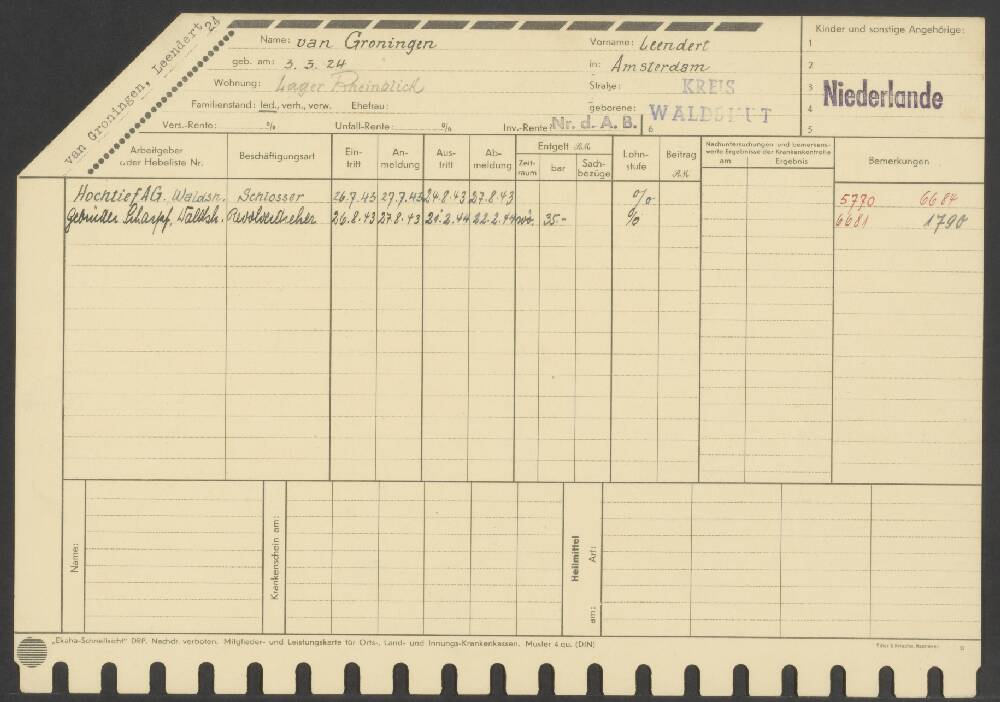 van Groningen, Leendert 24
Name: van Groningen
Vorname: Leendert
geb. am: 3. 3. 24
in: Amsterdam
Wohnung: Lager Rheinblick
Straße: KREIS WALDSHUT
Familienstand: led., verh., verw. Ehefrau:
geborene:
Vers.-Rente: % Unfall-Rente: % Inv.-Rente Nr. d. A. B.
Kinder und sonstige Angehörige:
1
2
3
4
5
6
Niederlande
Arbeitgeber oder Hebeliste Nr.
Beschäftigungsart
Ein-tritt
An-meldung
Aus-tritt
Ab-meldung
Entgelt RM
Zeit-raum
bar
Sach-bezüge
Lohn-stufe
Beitrag RM
Nachuntersuchungen und bemerkens-
werte Ergebnisse der Krankenkontrolle
am Ergebnis
Bemerkungen
Hochtief AG. Waldsh. Schlosser 26.7.43 27.7.43 24.8.43 27.8.43 % 5770 6684
Gebrüder 26.8.43 27.8.43 22.2.44 wö. 35- % 6681 1790
Name:
Krankenschein am:
Heilmittel
Art:
am:
„Ekaha-Schnellsicht" DRP. Nachdr. verboten. Mitglieder- und Leistungskarte für Orts-, Land- und Innungs-Krankenkassen. Muster 4 qu. (DIN)